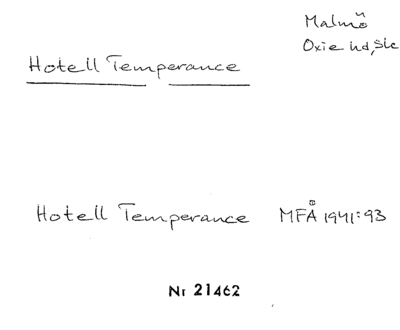 Malmö
Oxie hd, Sk
Hotell Temperance
Hotell Temperance MFÅ 1941:93
Nr 21462